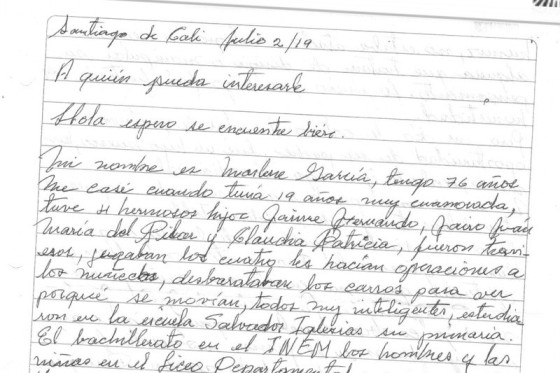 Santiago de Cali Julio 2/19
A quién pueda interesarle
Hola espero se encuentre bien.
Mi nombre es Marlene García, tengo 76 años
me casé cuando tenía 19 años muy enamorada,
tuve 4 hermosos hijos Jaime Fernando, Jairo Iván
María del Pilar y Claudia Patricia, fueron travi
esos, jugaban los cuatro les hacían operaciones a
los muñecos, desbarataban los carros para ver
porqué se movían, todos muy inteligentes, estudia
ron en la escuela Salvador Iglesias su primaria.
El bachillerato en el INEM los hombres y las
niñas en el Liceo Departamental